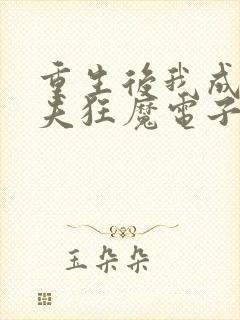 重生後我成
夫狂魔電子
玉朵朵